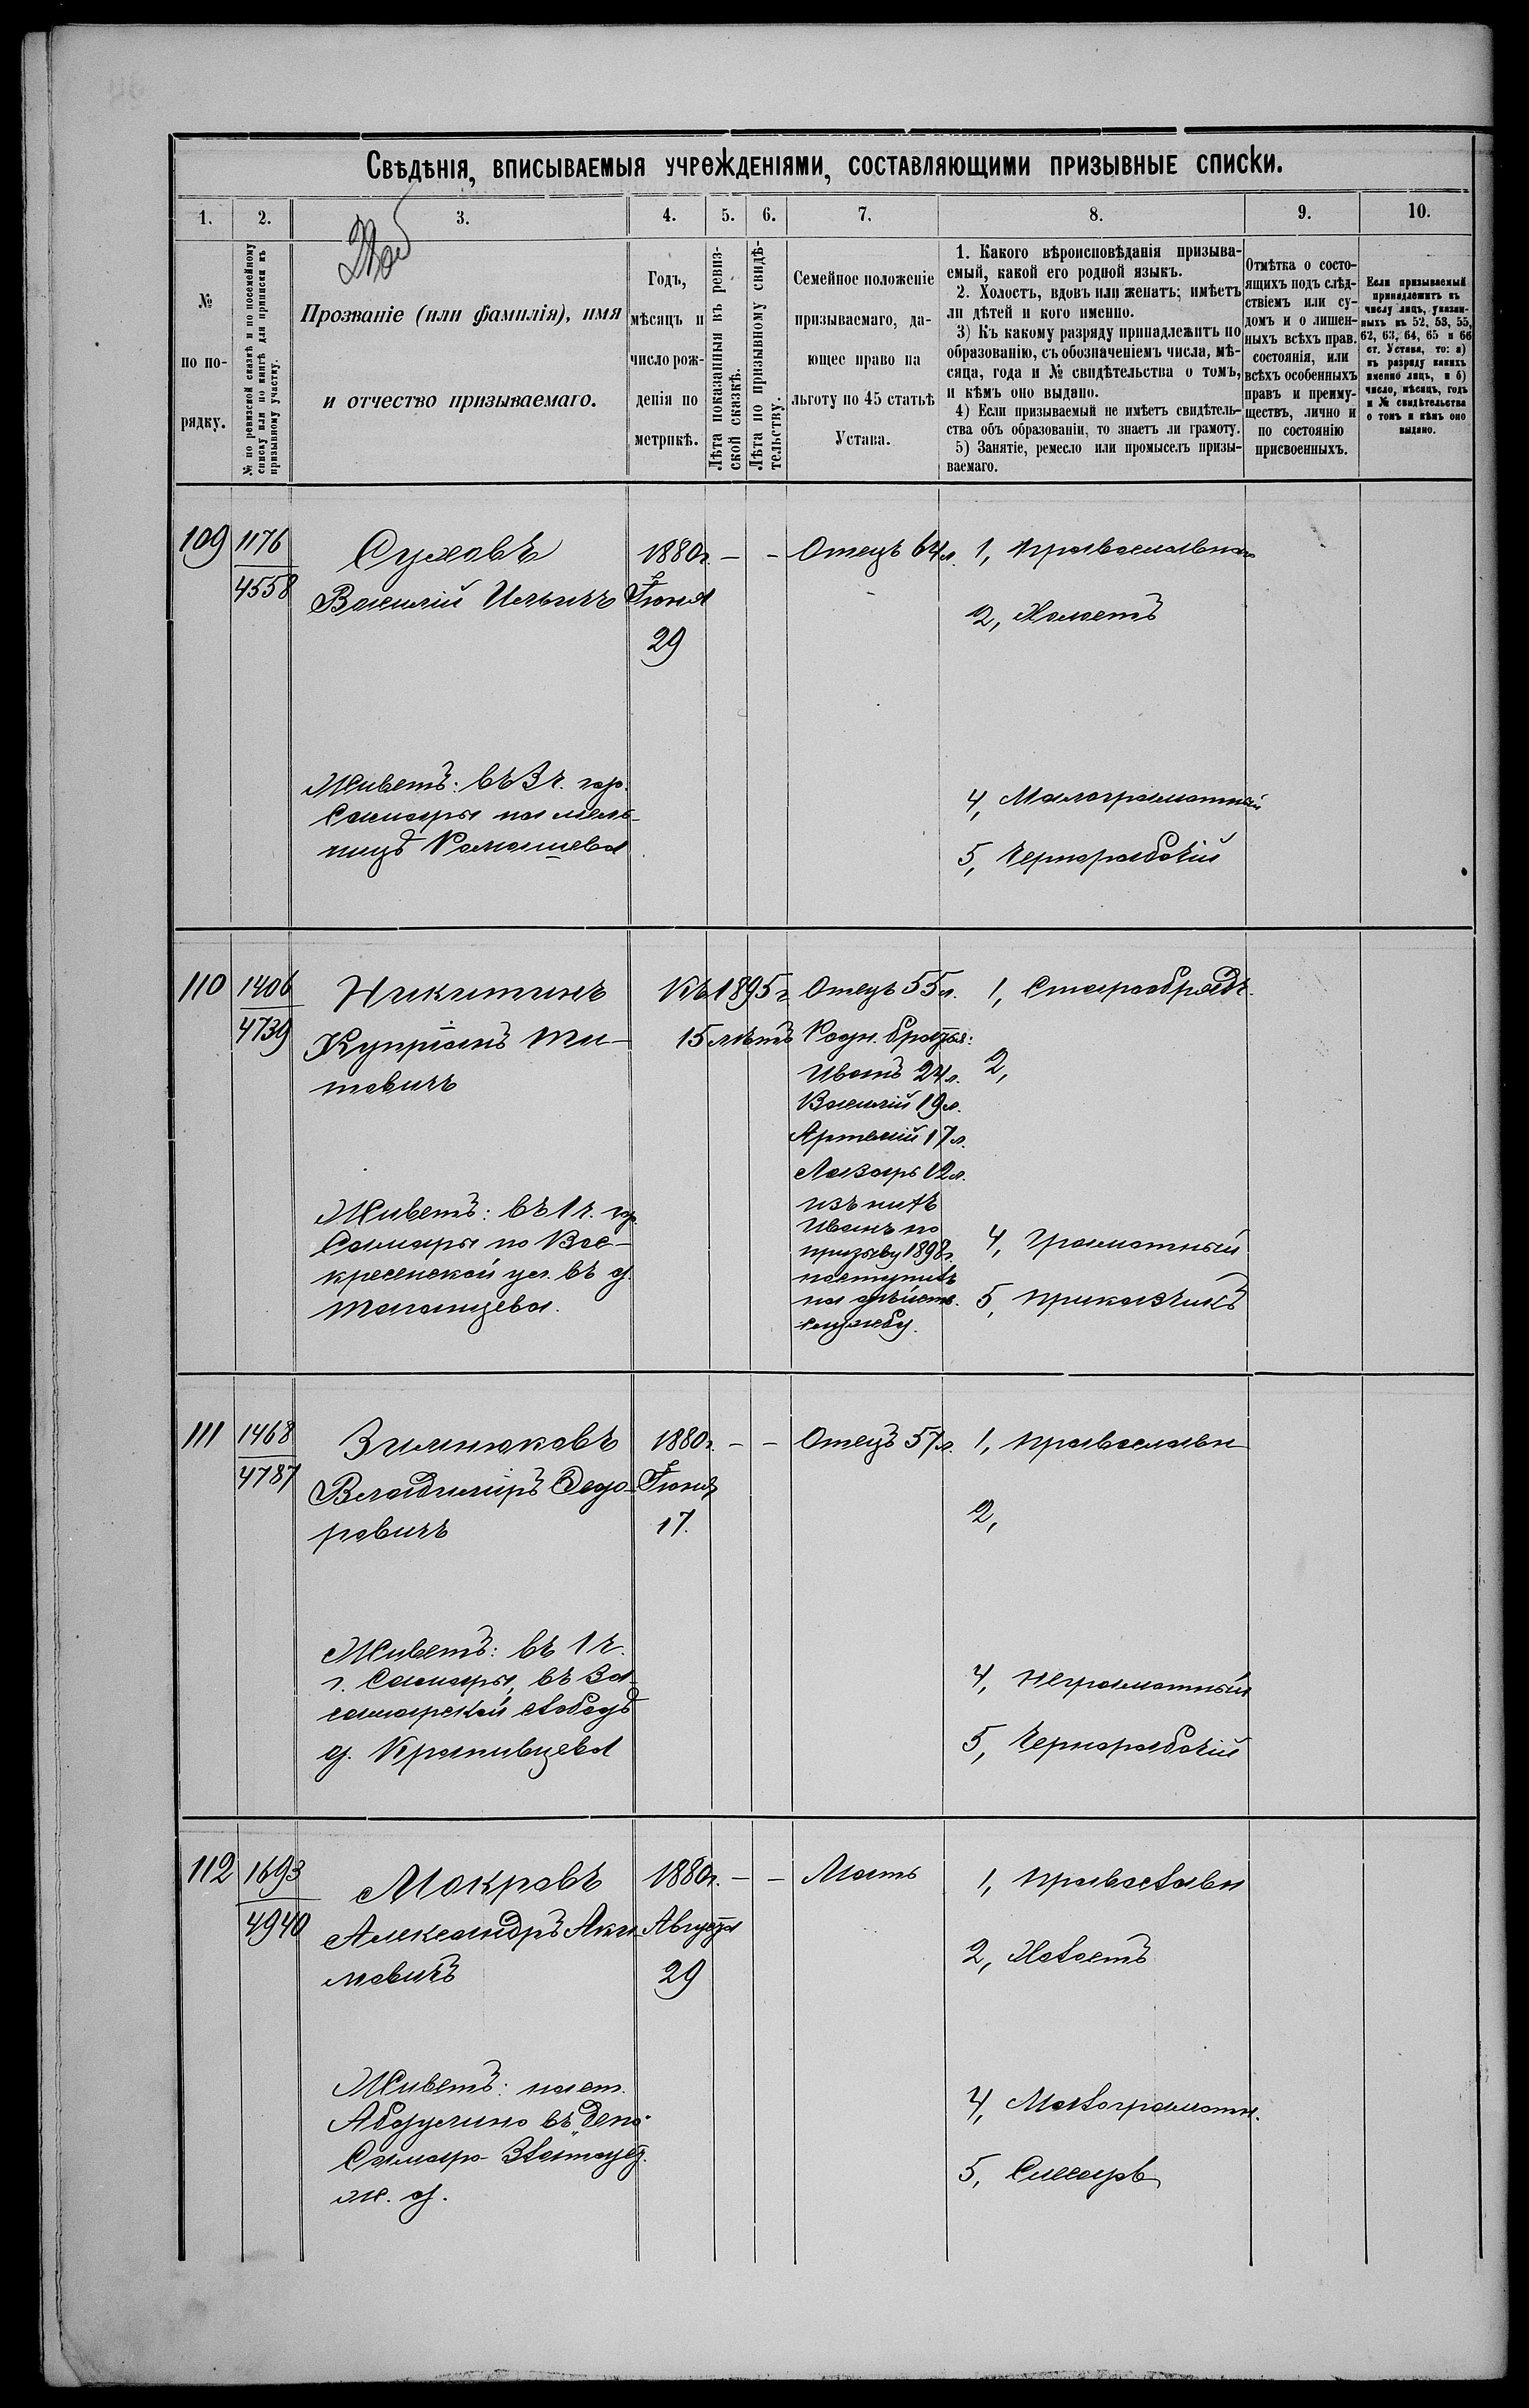 Свѣдѣнія, вписываемыя учрежденіями, составляющими призывные списки.
1. 2. 3. 4. 5. 6. 7. 8. 9. 10.
№ по порядку.
№ по ревизской сказкѣ и по посемейному списку или по книгѣ для приписки къ призывному участку.
Прозваніе (или фамилія), имя
и отчество призываемаго.
Годъ,
мѣсяцъ и
число рож-
денія по
метрикѣ.
Лѣта показанныя въ ревиз-
ской сказкѣ.
Лѣта по призывному свидѣ-
тельству.
Семейное положеніе
призываемаго, да-
ющее право на
льготу по 45 статьѣ
Устава.
1. Какого вѣроисповѣданія призыва-
емый, какой его родной языкъ.
2. Холостъ, вдовъ или женатъ; имѣетъ
ли дѣтей и кого именно.
3) Къ какому разряду принадлежитъ по
образованію, съ обозначеніемъ числа, мѣ-
сяца, года и № свидѣтельства о томъ,
и кѣмъ оно выдано.
4) Если призываемый не имѣетъ свидѣтель-
ства объ образованіи, то знаетъ ли грамоту.
5) Занятіе, ремесло или промыселъ призы-
ваемаго.
Отмѣтка о состо-
ящихъ подъ слѣд-
ствіемъ или су-
домъ и о лишен-
ныхъ всѣхъ прав.
состоянія, или
всѣхъ особенныхъ
правъ и преиму-
ществъ, лично и
по состоянію
присвоенныхъ.
Если призываемый
принадлежитъ къ
числу лицъ, указан-
ныхъ въ 52, 53, 55,
62, 63, 64, 65 и 66
ст. Устава, то: а)
къ разряду какихъ
именно лицъ, и б)
число, мѣсяцъ, годъ
и № свидѣтельства
о томъ и кѣмъ оно
выдано.
109 1176 Суховъ 1880г. – – Отецъ 64 л. 1, Православн
4558 Василій Ильичъ Іюня
29
2, Холостъ
Живетъ: въ 3 ч. гор.
Самары на мель-
ницѣ Ромашева
4, Малограмотный
5, Чернорабочій
110 1406 Никитинъ Къ 1895 г. Отецъ 55 л. 1, Старообрядч.
4739 Купріанъ Ти- 15 лѣтъ Родн. братья:
товичъ
Иванъ 24 л. 2,
Василій 19 л.
Артемій 17 л.
Лазарь 12 л.
изъ нихъ
Иванъ по
призыву 1898г.
поступилъ
на дѣйств.
службу.
Живетъ: въ 1 ч. гор.
Самары по Вос-
кресенской ул. въ д.
Таланцева.
4, Грамотный
5, Приказчикъ
111 1468 Зимнюковъ 1880г. – – Отецъ 57 л. 1, Православн
4787 Владиміръ Ѳедо- Іюня
ровичъ 17. 2,
Живетъ: въ 1 ч.
г. Самары, въ За-
самарской слободѣ
д. Крапивцева
4, Неграмотный
5, Чернорабочій
112 1693 Мокровъ 1880г. – – Мать 1, Православн
4940 Александръ Аки- Августа
мовичъ 29 2, Холостъ
Живетъ: на ст.
Абдулино въ депо
Самаро-Златоуст.
ж. д.
4, Малограмотн.
5, Слесарь